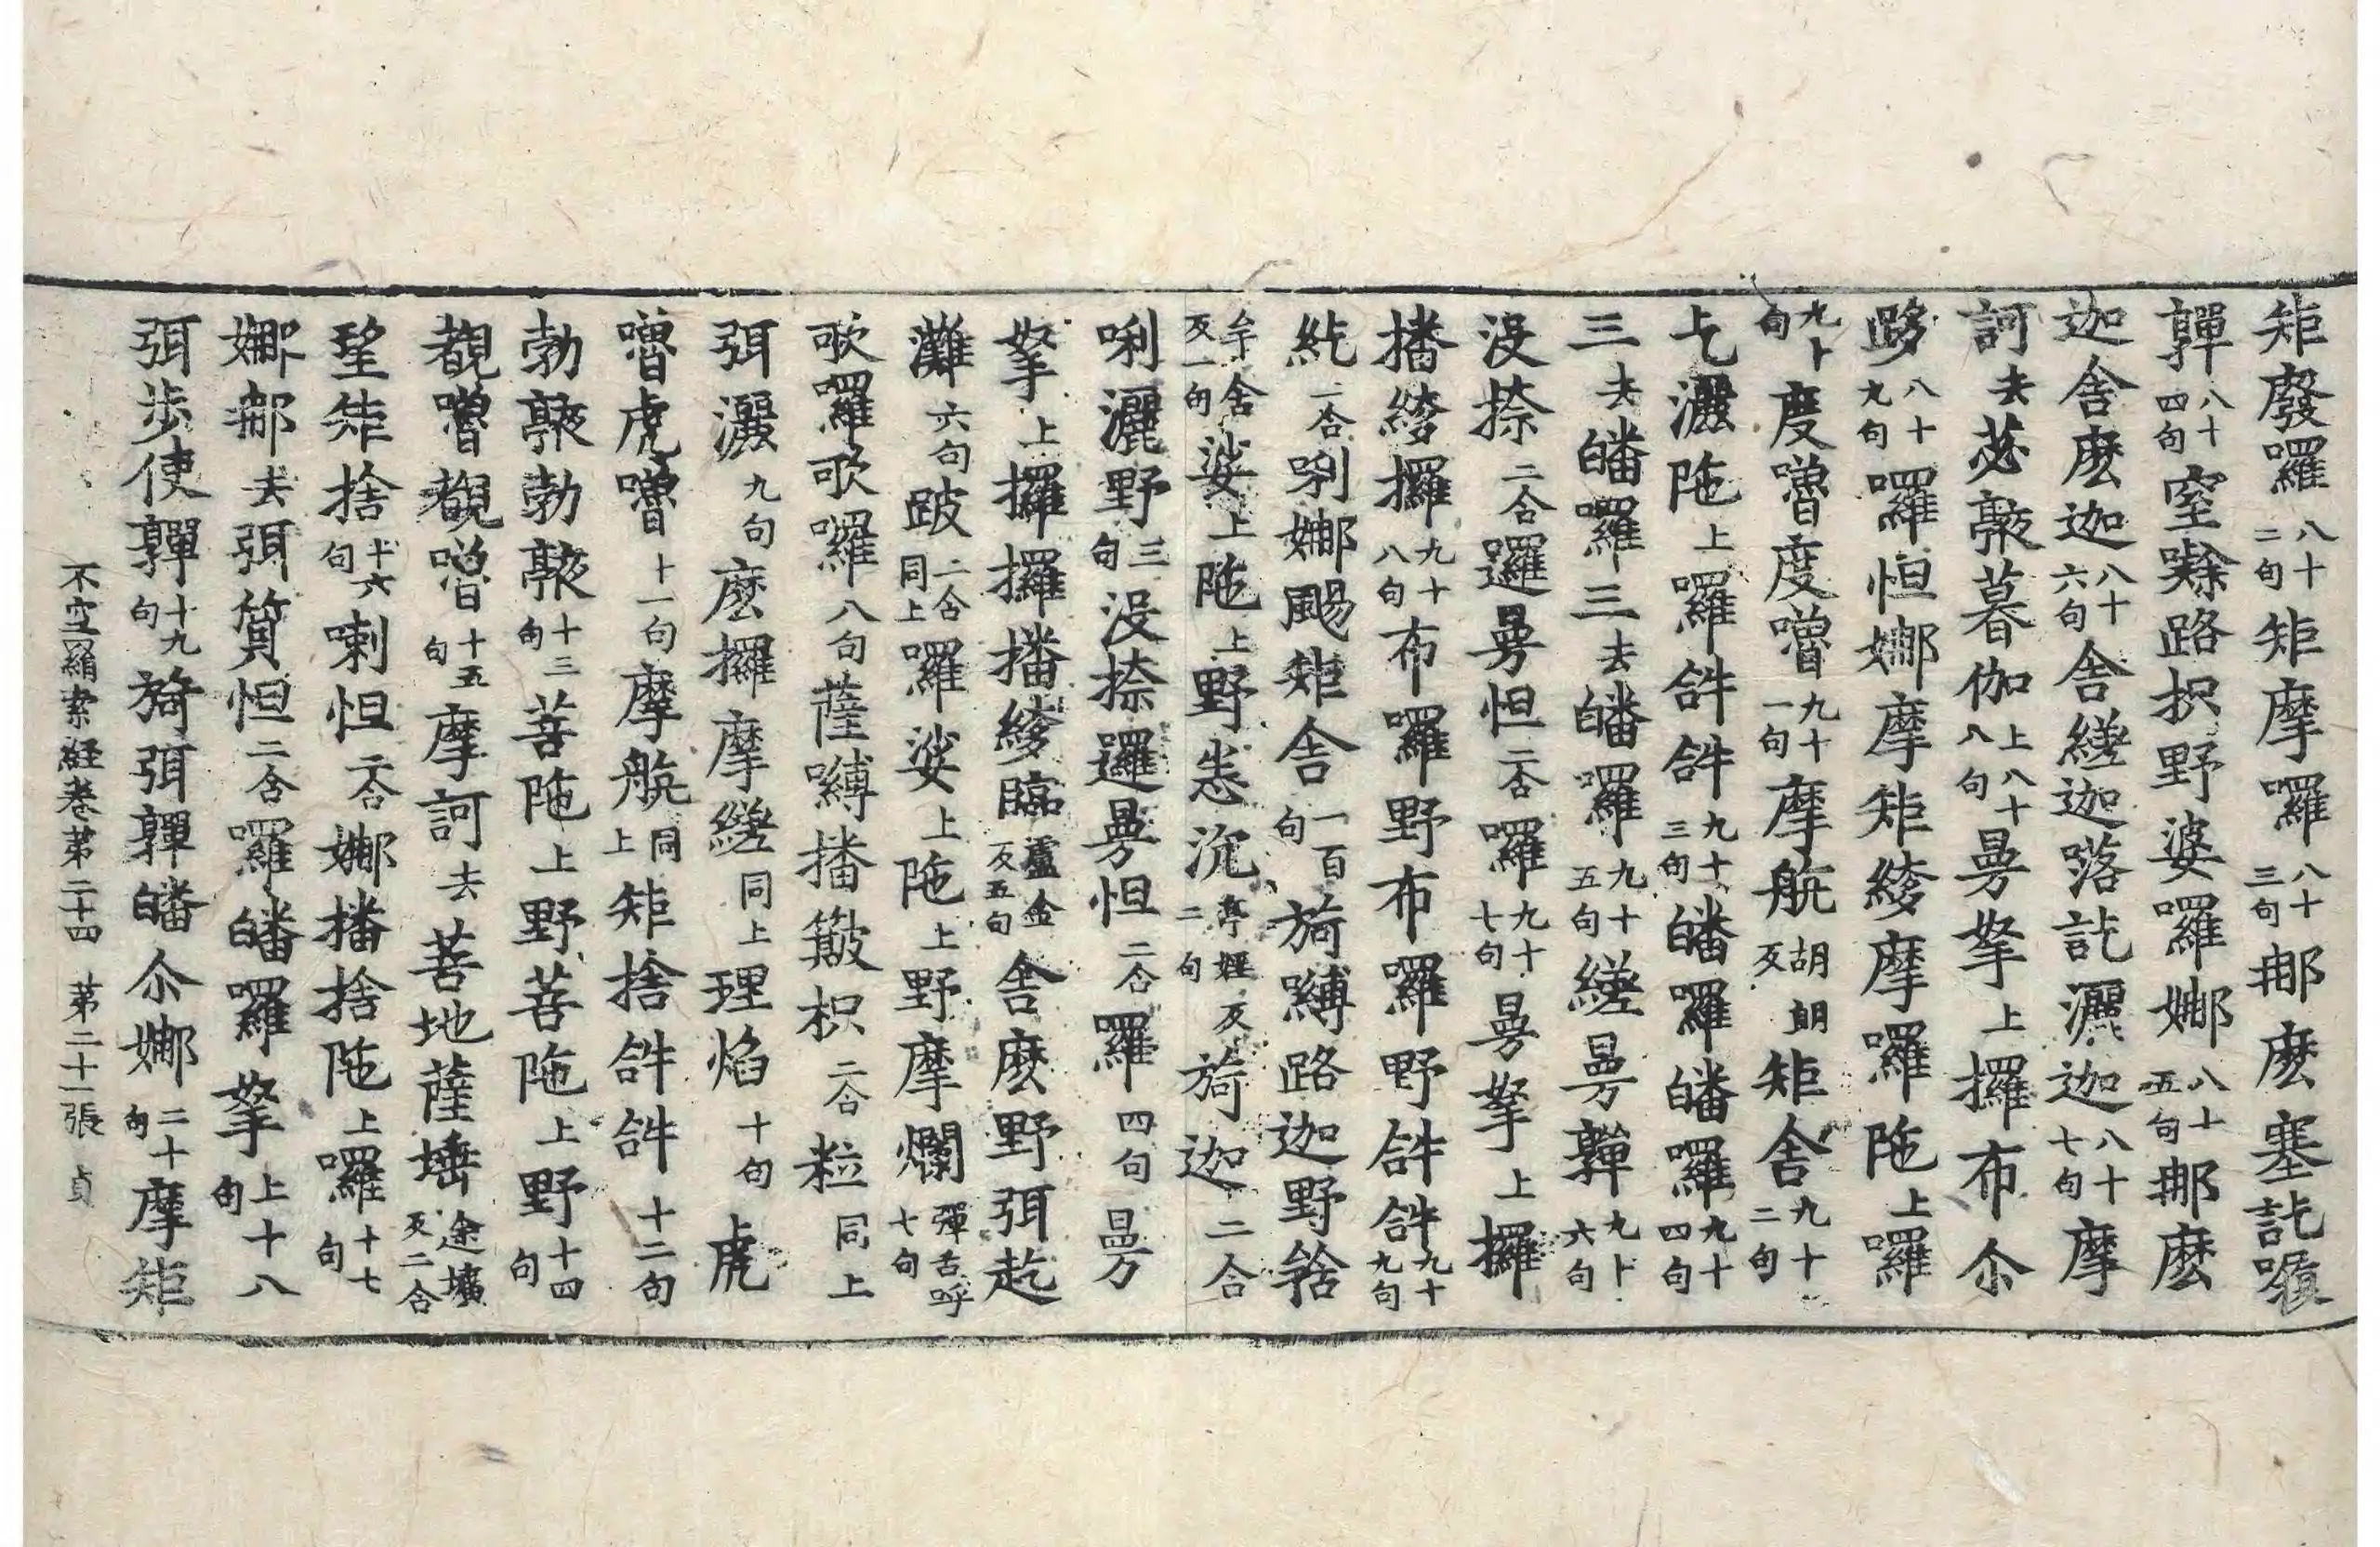 矩廢囉八十二句矩摩囉八十三句那麽塞訖
鞸八十四句窒路抧野婆囉娜八十五句那麽
迦舍麽迦八十六句舍縒迦落訖灑迦八十七句摩
訶去苾暮伽上八十八句曼拏上攞布尒
八十九句囉怛娜摩矩綾摩囉陁上囉
九十句度嚕度嚕九十一句摩航胡朗反矩舍九十二句
灑陁上囉𤙖𤙖九十三句皤囉皤囉九十四句
三去皤囉三去皤囉九十五句縒曼鞸九十六句
没捺二合邏曼怛二合囉九十七句曼拏上攞
播綾攞九十八句布囉野布囉野𤙖𤙖九十九句
二合唎娜颺矩舍一百句旖嚩路迦野
舍反一句娑上陁上野恚沆亭姪反二句旖迦二合
唎灑野三句没捺邏曼怛二合羅四句曼
拏上攞攞播綾臨盧金反五句舍麽野弭訖
灘六句跛二合同上囉娑上陁上野摩爛彈舌呼七句
歌囉歌囉八句薩嚩播簸抧二合粒同上
弭灑九句麽攞摩縒同上理焰十句虎
嚕虎嚕十一句摩航同上矩捨𤙖𤙖十二句
勃勃十三句菩陁上野菩陁上野十四句
覩嚕覩嚕十五句摩訶去菩地薩埵途壙反二合
矩捨十六句喇怛二合娜播捨陁上囉十七句
娜那去弭質怛二合囉皤囉拏上十八句
弭步使鞸十九句旖弭鞸皤尒娜二十句摩矩
不空羂索經卷第二十四　第二十一張　貞